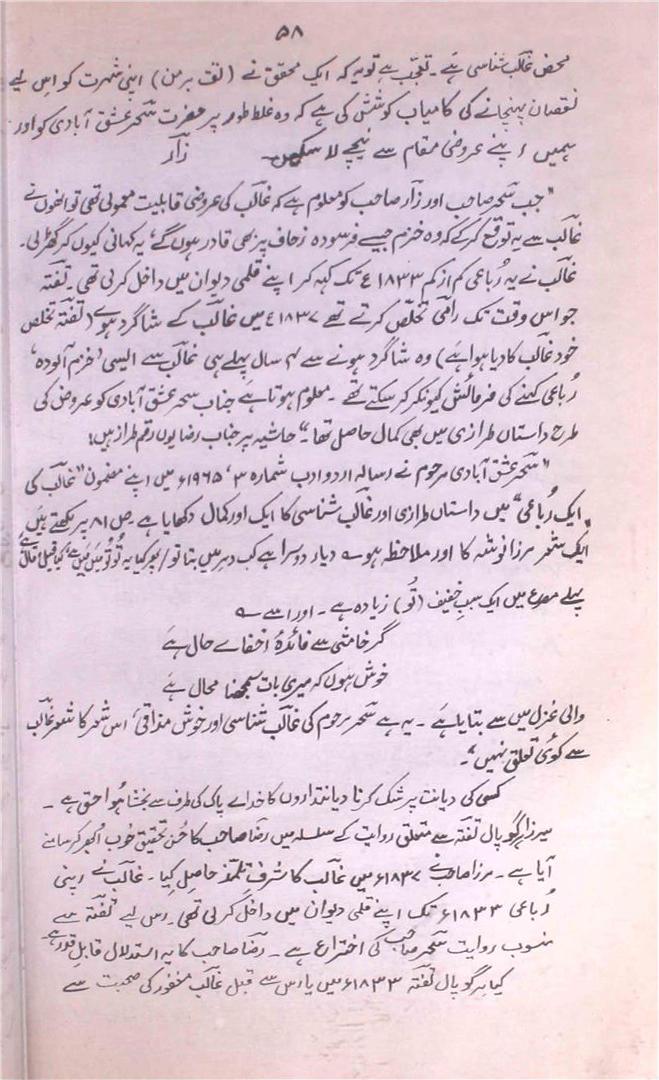 ۵۸
محض غالب شناسی ہے۔ تعجب ہے تو یہ کہ ایک محقق نے (لف بر من) اپنی شہرت کو اس لیے
نقصان پہنچانے کی کامیاب کوشش کی ہے کہ وہ غلط طور پر حضرت سحر عشق آبادی کو اور
ہمیں اپنے عروضی مقام سے نیچے لا سکیں۔ زار
"جب سحر صاحب اور زار صاحب کو معلوم ہے کہ غالب کی عروضی قابلیت معمولی تھی تو انھوں نے
غالب سے یہ توقع کر کے کہ وہ خزم جیسے فرسودہ زحاف پر بھی قادر ہوں گے، یہ کہانی کیوں کر گھڑ لی۔
غالب نے یہ رُباعی کم از کم ۱۸۳۳ء تک کہہ کر اپنے قلمی دیوان میں داخل کر لی تھی۔ تفتہ
جو اس وقت تک رامی تخلص کرتے تھے ۱۸۳۷ء میں غالب کے شاگرد ہوے (تفتہ تخلص
خود غالب کا دیا ہوا ہے) وہ شاگرد ہونے سے ۴ سال پہلے ہی غالب سے ایسی 'خزم آلودہ'
رُباعی کہنے کی فرمائش کیونکر کر سکتے تھے۔ معلوم ہوتا ہے جناب سحر عشق آبادی کو عروض کی
طرح داستاں طرازی میں بھی کمال حاصل تھا۔" حاشیہ پر جناب رضا یوں رقم طراز ہیں:
"سحر عشق آبادی مرحوم نے رسالہ اردو ادب شمارہ ۳، ۱۹۶۵ء میں اپنے مضمون "غالب کی
ایک رُباعی" میں داستاں طرازی اور غالب شناسی کا ایک اور کمال دکھایا ہے۔ ص ۸۱ پر لکھتے ہیں
"ایک شعر مرزا نوشہ کا اور ملاحظہ ہو ؎ دیار دوسرا ہے کب دہر میں بتا تو / پھر کیا یہ تُو تُو مَیں مَیں ہے، کیا قیل قال ہے
پہلے مصرع میں ایک سببِ خفیف (تُو) زیادہ ہے۔ اور اسے ؎
گر خامشی سے فائدہ اخفاے حال ہے
خوش ہوں کہ میری بات سمجھنا محال ہے
والی غزل میں سے بتایا ہے۔ یہ ہے سحر مرحوم کی غالب شناسی اور خوش مذاقی، اس شعر کا شعرِ غالب
سے کوئی تعلق نہیں"۔
کسی کی دیانت پر شک کرنا دیانتداروں کا خداے پاک کی طرف سے بخشا ہُوا حق ہے۔
میرزا ہرگوپال تفتہ سے متعلق روایت کے سلسلہ میں رضا صاحب کا حُسنِ تحقیق خوب اُبھر کر سامنے
آیا ہے۔ مرزا صاحب نے ۱۸۳۷ء میں غالب کا شرفِ تلمذ حاصل کیا۔ غالب نے اپنی
رُباعی ۱۸۳۳ء تک اپنے قلمی دیوان میں داخل کر لی تھی۔ اس لیے تفتہ سے
منسوب روایت سحر صاحب کی اختراع ہے۔ رضا صاحب کا یہ استدلال قابلِ قدر ہے۔
کیا ہرگوپال تفتہ ۱۸۳۳ء میں یا اس سے قبل غالب مغفور کی صحبت سے